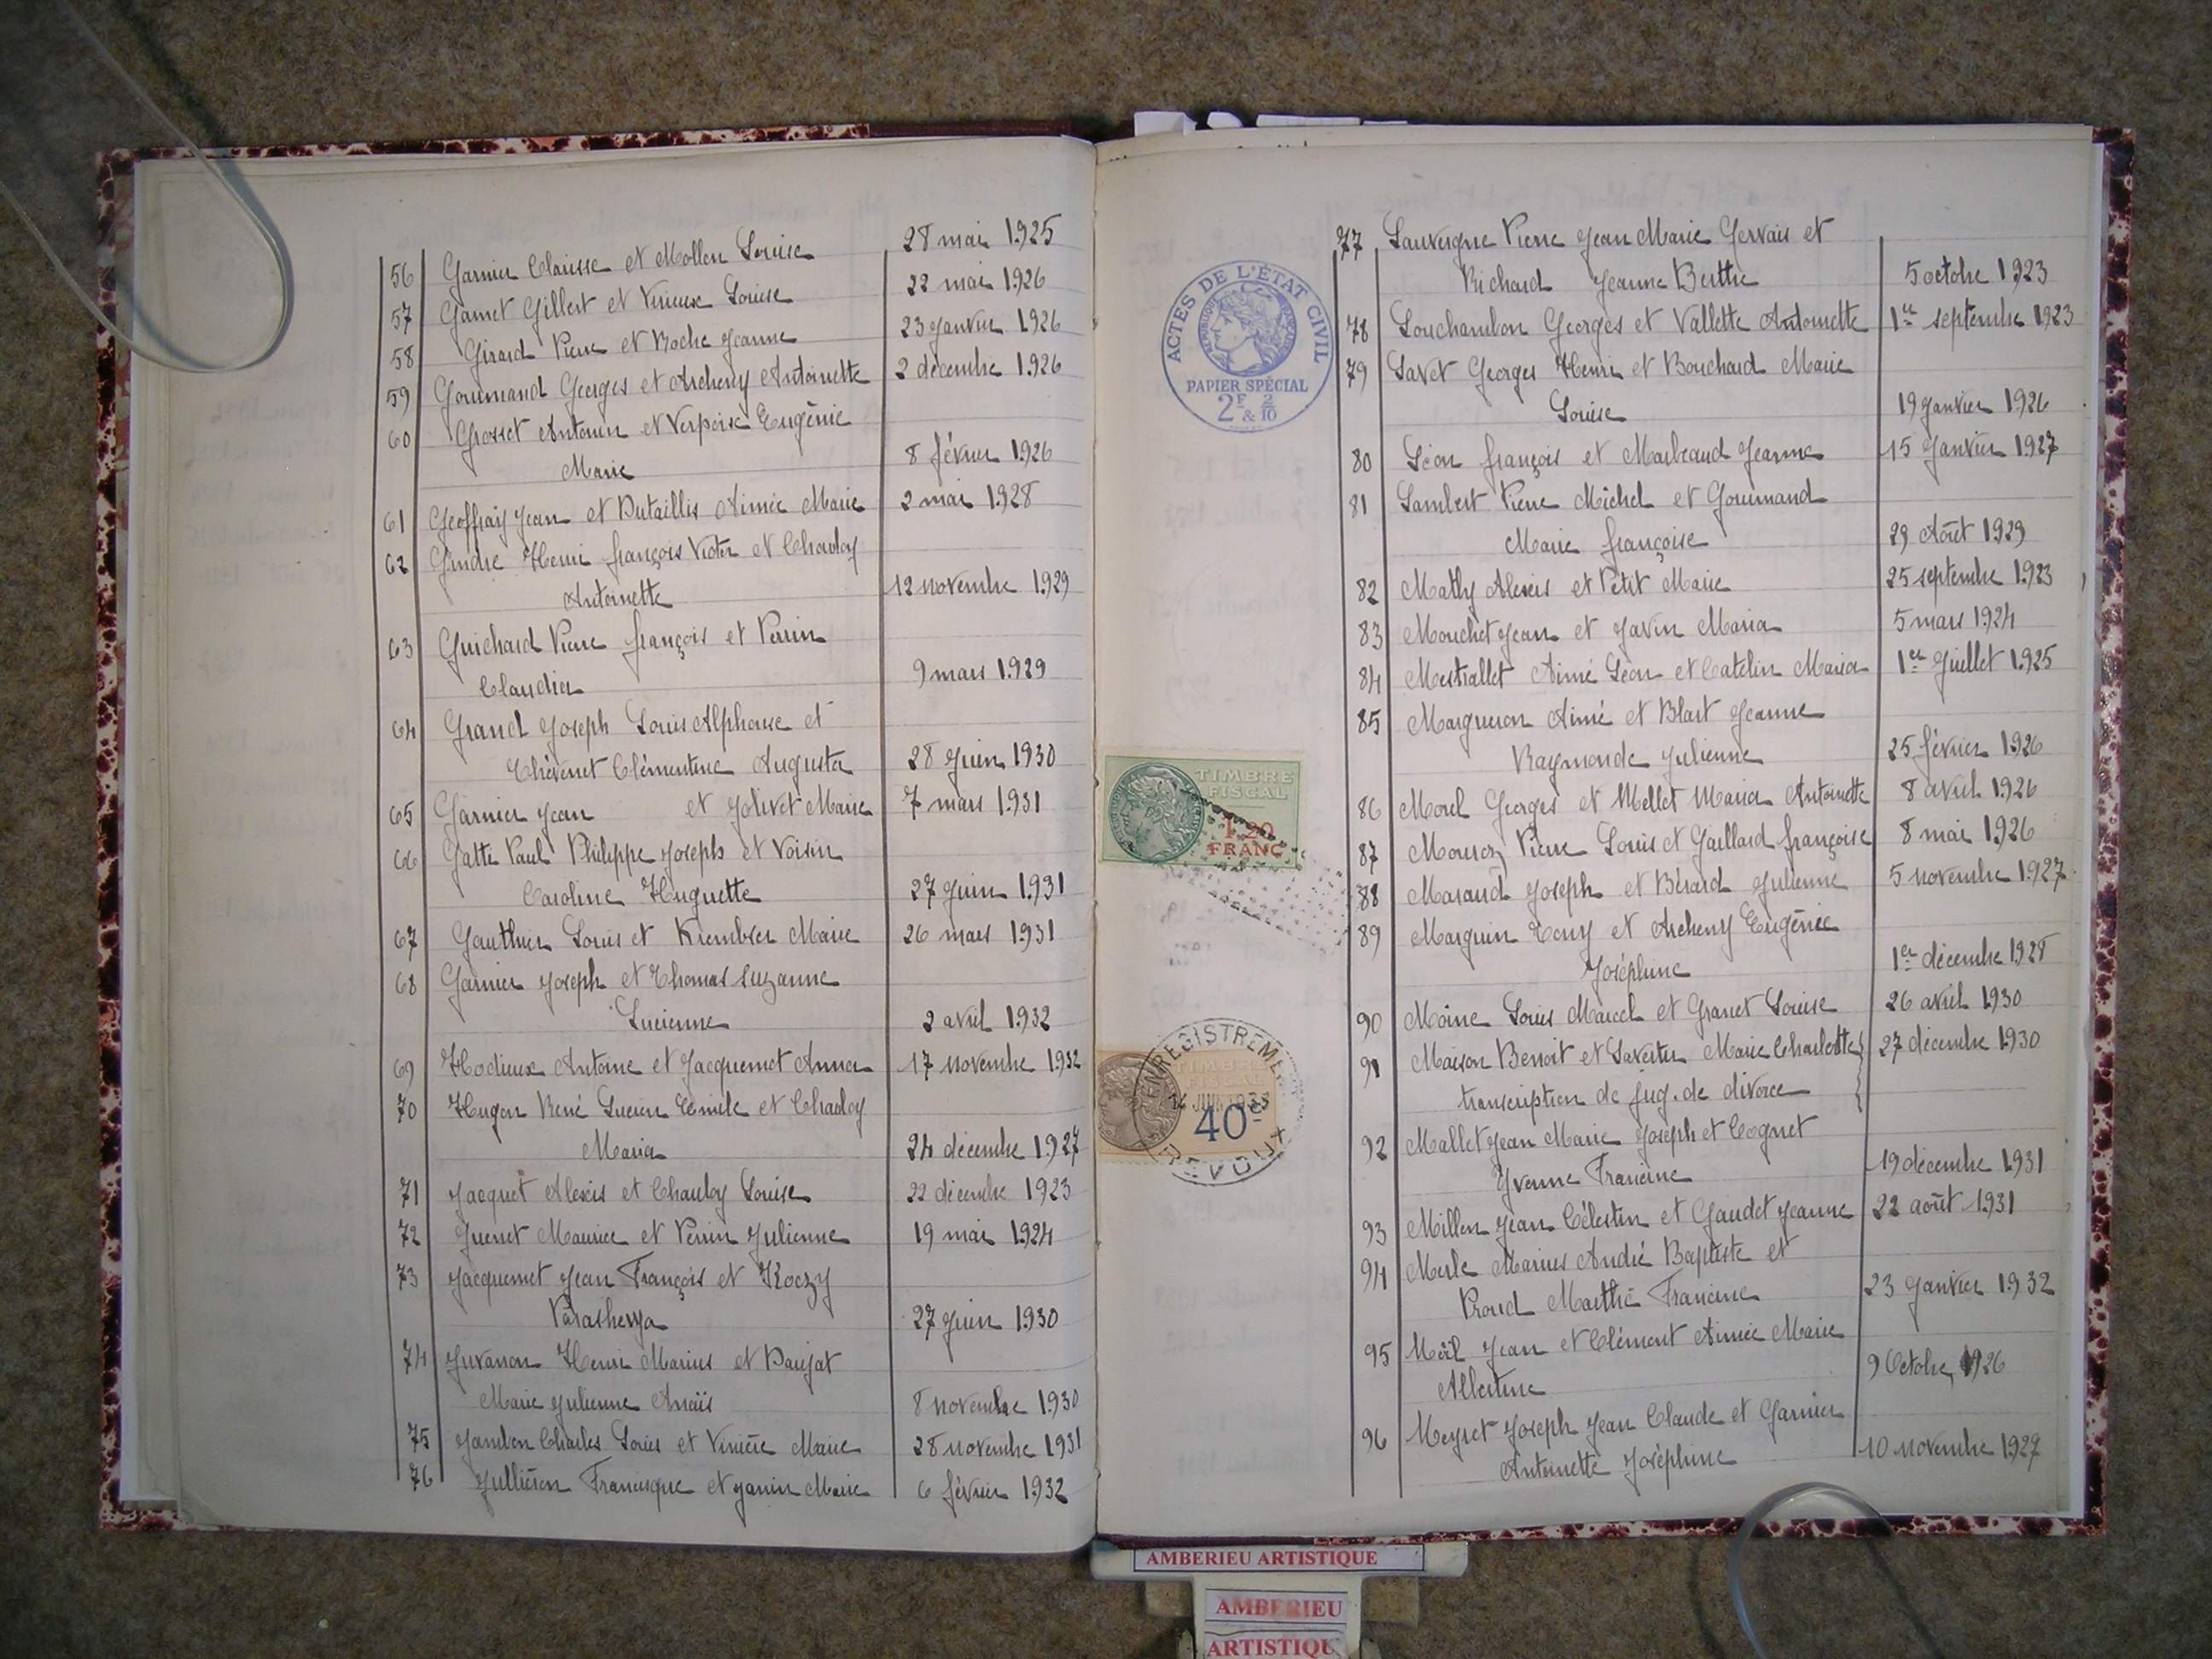 56 Garnier Clarisse et Mollon Louise 28 mai 1925
57 Gamet Gilbert et Vineux Louise 22 mai 1926
58 Girard Pierre et Roche Jeanne 23 Janvier 1926
59 Gourmand Georges et Archeny Antoinette 2 décembre 1926
60 Grosset Antonin et Verpoix Eugénie
Marie 8 février 1926
61 Geoffray Jean et Dutaillis Aimée Marie 2 mai 1928
62 Gindre Henri françois Victor et Chauloy
Antoinette 12 novembre 1929
63 Guichard Pierre françois et Perrin
Claudia 9 mars 1929
64 Grand Joseph Louis Alphonse et
Thévenet Clémentine Augusta 28 Juin 1930
65 Garnier Jean et Jolivet Marie 7 mars 1931
66 Gatti Paul Philippe Joseph et Voisin
Caroline Huguette 27 Juin 1931
67 Gauthier Louis et Krembser Marie 26 mars 1931
68 Garnier Joseph et Thomas Suzanne
Lucienne 2 avril 1932
69 Hodieux Antoine et Jacquemet Anna 17 novembre 1932
70 Hugon René Lucien Emile et Chauloy
Maria 24 décembre 1927
71 Jacquet Alexis et Chauloy Louise 22 décembre 1923
72 Juenet Maurice et Perrin Julienne 19 mai 1924
73 Jacquemet Jean François et Koczy
Parashewa 27 Juin 1930
74 Juvanon Henri Marius et Daujat
Marie Julienne Anaïs 8 novembre 1930
75 Jambon Charles Louis et Vinière Marie 28 novembre 1931
76 Jullièron Francisque et Janin Marie 6 février 1932
ACTES DE L'ÉTAT CIVIL
RÉPUBLIQUE FRANÇAISE
PAPIER SPÉCIAL
2F & 2/10
TIMBRE
FISCAL
1.20
FRANC
ENREGISTREMENT
TIMBRE
FISCAL
JUIN 1933
40c
TREVOUX
77 Lauvergne Pierre Jean Marie Gervais et
Richard Jeanne Berthe 5 octobre 1923
78 Louchambon Georges et Vallette Antoinette 1er septembre 1923
79 Lavet Georges Henri et Bouchard Marie
Louise 19 Janvier 1926
80 Léon françois et Marbeaud Jeanne 15 Janvier 1927
81 Lambert Pierre Michel et Gourmand
Marie françoise 29 Août 1929
82 Mathy Alexis et Petit Marie 25 septembre 1923
83 Mouchet Jean et Javin Maria 5 mars 1924
84 Mestrallet Aimé Léon et Catelin Maria 1er Juillet 1925
85 Margueron Aimé et Blart Jeanne
Raymonde Julienne 25 février 1926
86 Morel Georges et Mellet Maria Antoinette 8 avril 1926
87 Mouroz Pierre Louis et Gaillard françoise 8 mai 1926
88 Maraud Joseph et Bérard Julienne 5 novembre 1927
89 Marguin Tony et Archeny Eugénie
Joséphine 1er décembre 1928
90 Moine Louis Marcel et Granet Louise 26 avril 1930
91 Maison Benoit et Savestu Marie Charlotte 27 décembre 1930
transcription de jug. de divorce
92 Mallet Jean Marie Joseph et Cognet
Yvonne Francine 19 décembre 1931
93 Millon Jean Célestin et Gaudet Jeanne 22 août 1931
94 Merle Marius André Baptiste et
Proud Marthe Francine 23 Janvier 1932
95 Moël Jean et Clément Aimée Marie
Albertine 9 Octobre 1926
96 Meyret Joseph Jean Claude et Garnier
Antoinette Joséphine 10 novembre 1927
AMBERIEU ARTISTIQUE
AMBERIEU
ARTISTIQU